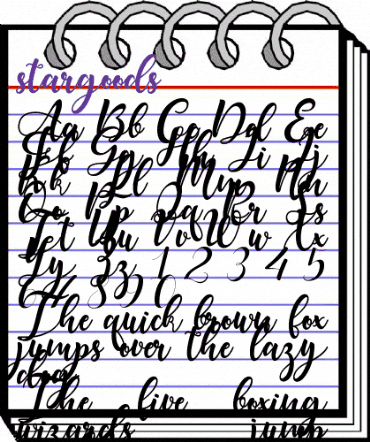 stargoods
Aa Bb Cc Dd Ee
Ff Gg Hh Ii Jj
Kk Ll Mm Nn
Oo Pp Qq Rr Ss
Tt Uu Vv Ww Xx
Yy Zz 1 2 3 4 5
The quick brown fox
jumps over the lazy
dog
The five boxing
wizards jump